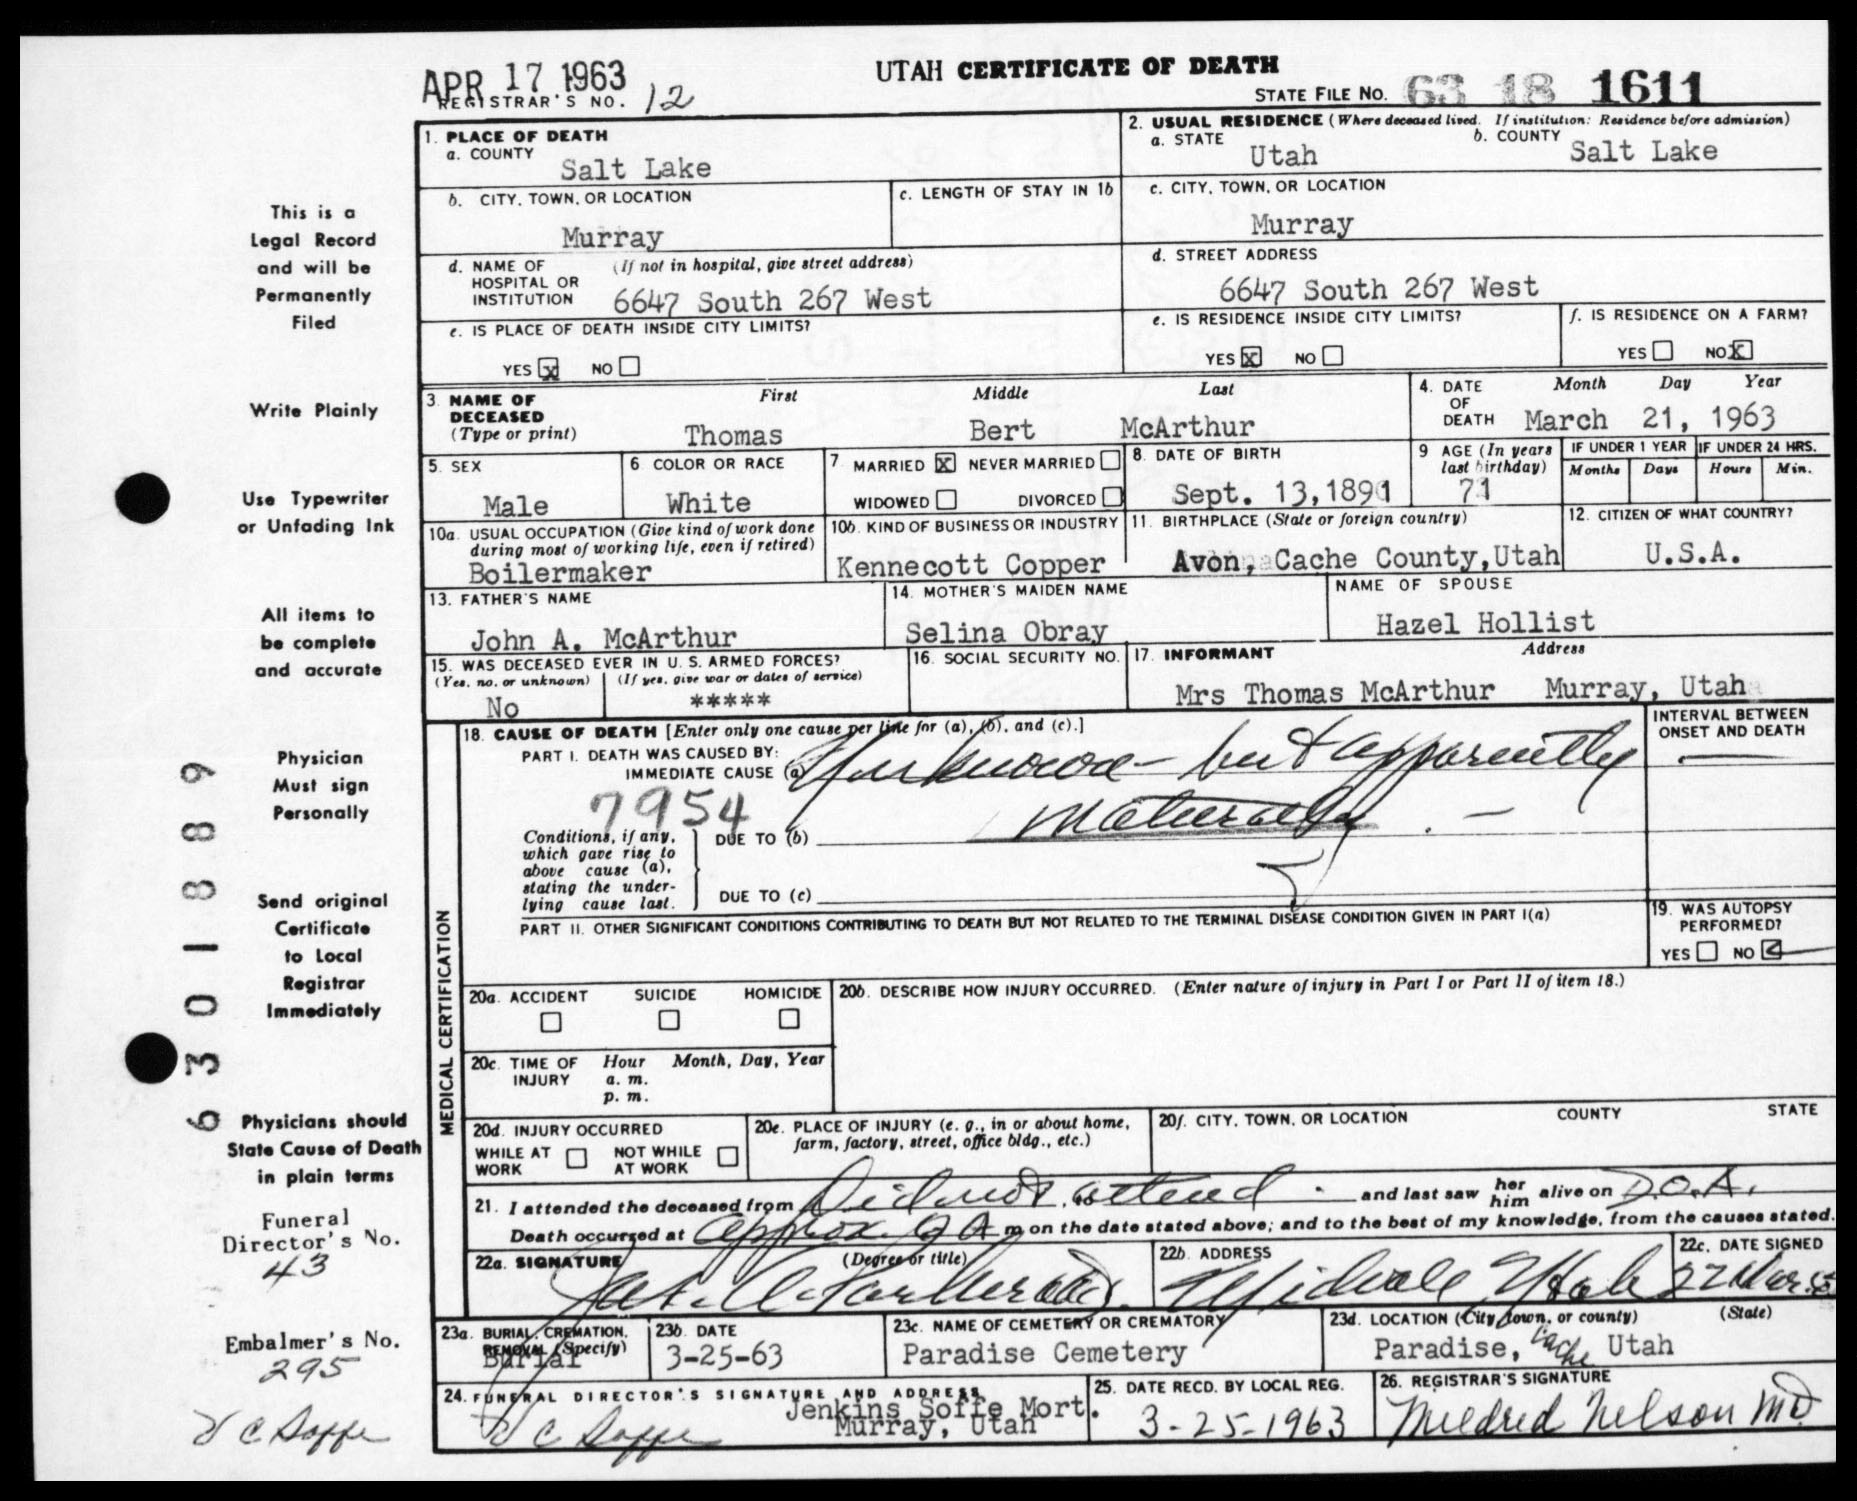 APR 17 1963
UTAH CERTIFICATE OF DEATH
REGISTRAR'S NO. 12
STATE FILE NO. 63 18 1611
1. PLACE OF DEATH
a. COUNTY
Salt Lake
2. USUAL RESIDENCE (Where deceased lived. If institution: Residence before admission)
a. STATE Utah b. COUNTY Salt Lake
b. CITY, TOWN, OR LOCATION
Murray
c. LENGTH OF STAY IN 1b
c. CITY, TOWN, OR LOCATION
Murray
d. NAME OF HOSPITAL OR INSTITUTION (If not in hospital, give street address)
6647 South 267 West
d. STREET ADDRESS
6647 South 267 West
e. IS PLACE OF DEATH INSIDE CITY LIMITS?
YES X NO
e. IS RESIDENCE INSIDE CITY LIMITS?
YES X NO
f. IS RESIDENCE ON A FARM?
YES NO X
3. NAME OF DECEASED (Type or print)
First Middle Last
Thomas Bert McArthur
4. DATE OF DEATH Month Day Year
March 21, 1963
5. SEX
Male
6. COLOR OR RACE
White
7. MARRIED X NEVER MARRIED
WIDOWED DIVORCED
8. DATE OF BIRTH
Sept. 13, 1891
9 AGE (In years last birthday)
71
IF UNDER 1 YEAR
Months Days
IF UNDER 24 HRS.
Hours Min.
10a. USUAL OCCUPATION (Give kind of work done during most of working life, even if retired)
Boilermaker
10b. KIND OF BUSINESS OR INDUSTRY
Kennecott Copper
11. BIRTHPLACE (State or foreign country)
Avon, Cache County, Utah
12. CITIZEN OF WHAT COUNTRY?
U.S.A.
13. FATHER'S NAME
John A. McArthur
14. MOTHER'S MAIDEN NAME
Selina Obray
NAME OF SPOUSE
Hazel Hollist
15. WAS DECEASED EVER IN U. S. ARMED FORCES?
(Yes, no, or unknown) (If yes, give war or dates of service)
No *****
16. SOCIAL SECURITY NO.
17. INFORMANT Address
Mrs Thomas McArthur Murray, Utah
MEDICAL CERTIFICATION
18. CAUSE OF DEATH [Enter only one cause per line for (a), (b), and (c).]
INTERVAL BETWEEN ONSET AND DEATH
PART I. DEATH WAS CAUSED BY:
IMMEDIATE CAUSE (a) Unknown - but apparently
7954
naturally. -
Conditions, if any, which gave rise to above cause (a), stating the underlying cause last.
DUE TO (b)
DUE TO (c)
PART II. OTHER SIGNIFICANT CONDITIONS CONTRIBUTING TO DEATH BUT NOT RELATED TO THE TERMINAL DISEASE CONDITION GIVEN IN PART I(a)
19. WAS AUTOPSY PERFORMED?
YES NO
20a. ACCIDENT SUICIDE HOMICIDE
20b. DESCRIBE HOW INJURY OCCURRED. (Enter nature of injury in Part I or Part II of item 18.)
20c. TIME OF INJURY Hour Month, Day, Year
a. m.
p. m.
20d. INJURY OCCURRED
WHILE AT WORK NOT WHILE AT WORK
20e. PLACE OF INJURY (e. g., in or about home, farm, factory, street, office bldg., etc.)
20f. CITY, TOWN, OR LOCATION COUNTY STATE
21. I attended the deceased from Did not attend - and last saw her him alive on D.O.A.
Death occurred at approx. 9 A m on the date stated above; and to the best of my knowledge, from the causes stated.
22a. SIGNATURE (Degree or title)
22b. ADDRESS
Midvale Utah
22c. DATE SIGNED
22 Mar. 63
23a. BURIAL, CREMATION, REMOVAL (Specify)
Burial
23b. DATE
3-25-63
23c. NAME OF CEMETERY OR CREMATORY
Paradise Cemetery
23d. LOCATION (City, town, or county) (State)
Paradise, Cache Utah
24. FUNERAL DIRECTOR'S SIGNATURE AND ADDRESS
Jenkins Soffe Mort.
Murray, Utah
V C Soffe
25. DATE RECD. BY LOCAL REG.
3-25-1963
26. REGISTRAR'S SIGNATURE
Mildred Nelson MD
This is a
Legal Record
and will be
Permanently
Filed
Write Plainly
Use Typewriter
or Unfading Ink
All items to
be complete
and accurate
Physician
Must sign
Personally
Send original
Certificate
to Local
Registrar
Immediately
Physicians should
State Cause of Death
in plain terms
Funeral
Director's No.
43
Embalmer's No.
295
V C Soffe
6301889